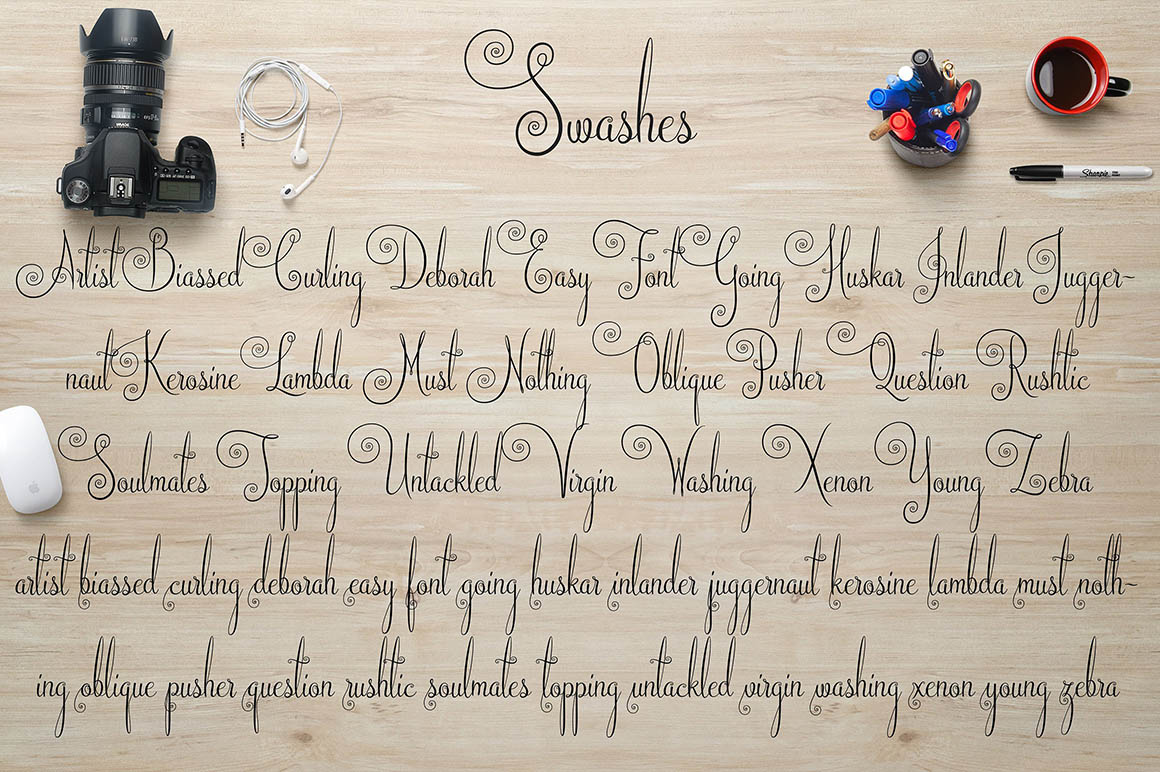 Swashes
Sharpie
Artist Biassed Curling Deborah Easy Font Going Huskar Inlander Jugger-
naut Kerosine Lambda Must Nothing Oblique Pusher Question Rushtic
Soulmates Topping Untackled Virgin Washing Xenon Young Zebra
artist biassed curling deborah easy font going huskar inlander juggernaut kerosine lambda must noth-
ing oblique pusher question rushtic soulmates topping untackled virgin washing xenon young zebra